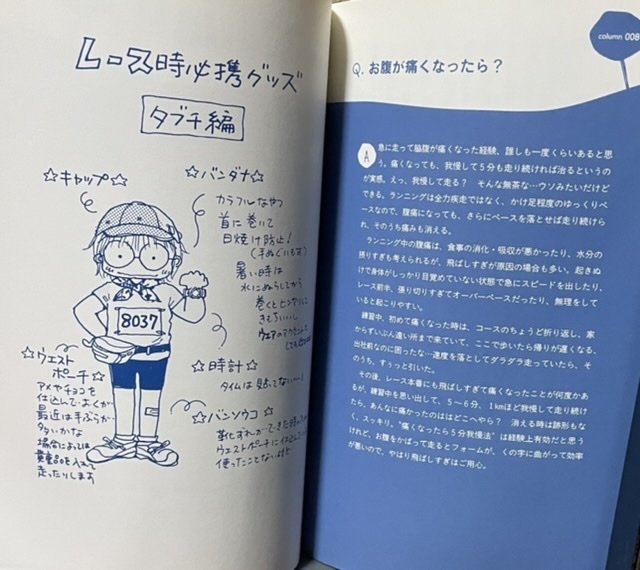 レース時必携グッズ
タブチ編
☆キャップ☆
☆バンダナ☆
カラフルなやつ
首に巻いて
日焼け防止!
(手ぬぐいも可)
暑い時は
水にぬらしてから
巻くとヒンヤリ
きもちいいし
ウェアのアクセント
8037
☆ウエスト
ポーチ☆
アメやチョコを
仕込んでおくか
最近は手ぶらが
多いかな
場合によっては
貴重品を入れて
走ったりします
☆時計☆
タイムは
☆バンソウコ☆
靴ずれができた時
ウエストポーチに仕込んで
使ったことないけど
column 008
Q. お腹が痛くなったら?
A
急に走って脇腹が痛くなった経験、誰しも一度くらいあると思
う。痛くなっても、我慢して5分も走り続ければ治るというの
が実感。えっ、我慢して走る? そんな無茶な…ウソみたいだけど
できる。ランニングは全力疾走ではなく、かけ足程度のゆっくりペ
ースなので、腹痛になっても、さらにペースを落とせば走り続けら
れ、そのうち痛みも消える。
ランニング中の腹痛は、食事の消化・吸収が悪かったり、水分の
摂りすぎも考えられるが、飛ばしすぎが原因の場合も多い。起きぬ
けで身体がしっかり目覚めていない状態で急にスピードを出したり、
レース前半、張り切りすぎてオーバーペースだったり、無理をして
いると起こりやすい。
練習中、初めて痛くなった時は、コースのちょうど折り返し、家
からずいぶん遠い所まで来ていて、ここで歩いたら帰りが遅くなる、
出社前なのに困ったな…速度を落としてダラダラ走っていたら、そ
のうち、すっと引いた。
その後、レース本番にも飛ばしすぎて痛くなったことが何度かあ
るが、練習中を思い出して、5〜6分、1kmほど我慢して走り続け
たら、あんなに痛かったのはどこへやら? 消える時は跡形もな
く、スッキリ。“痛くなったら5分我慢法”は経験上有効だと思う
けれど、お腹をかばって走るとフォームが、くの字に曲がって効率
が悪いので、やはり飛ばしすぎはご用心。